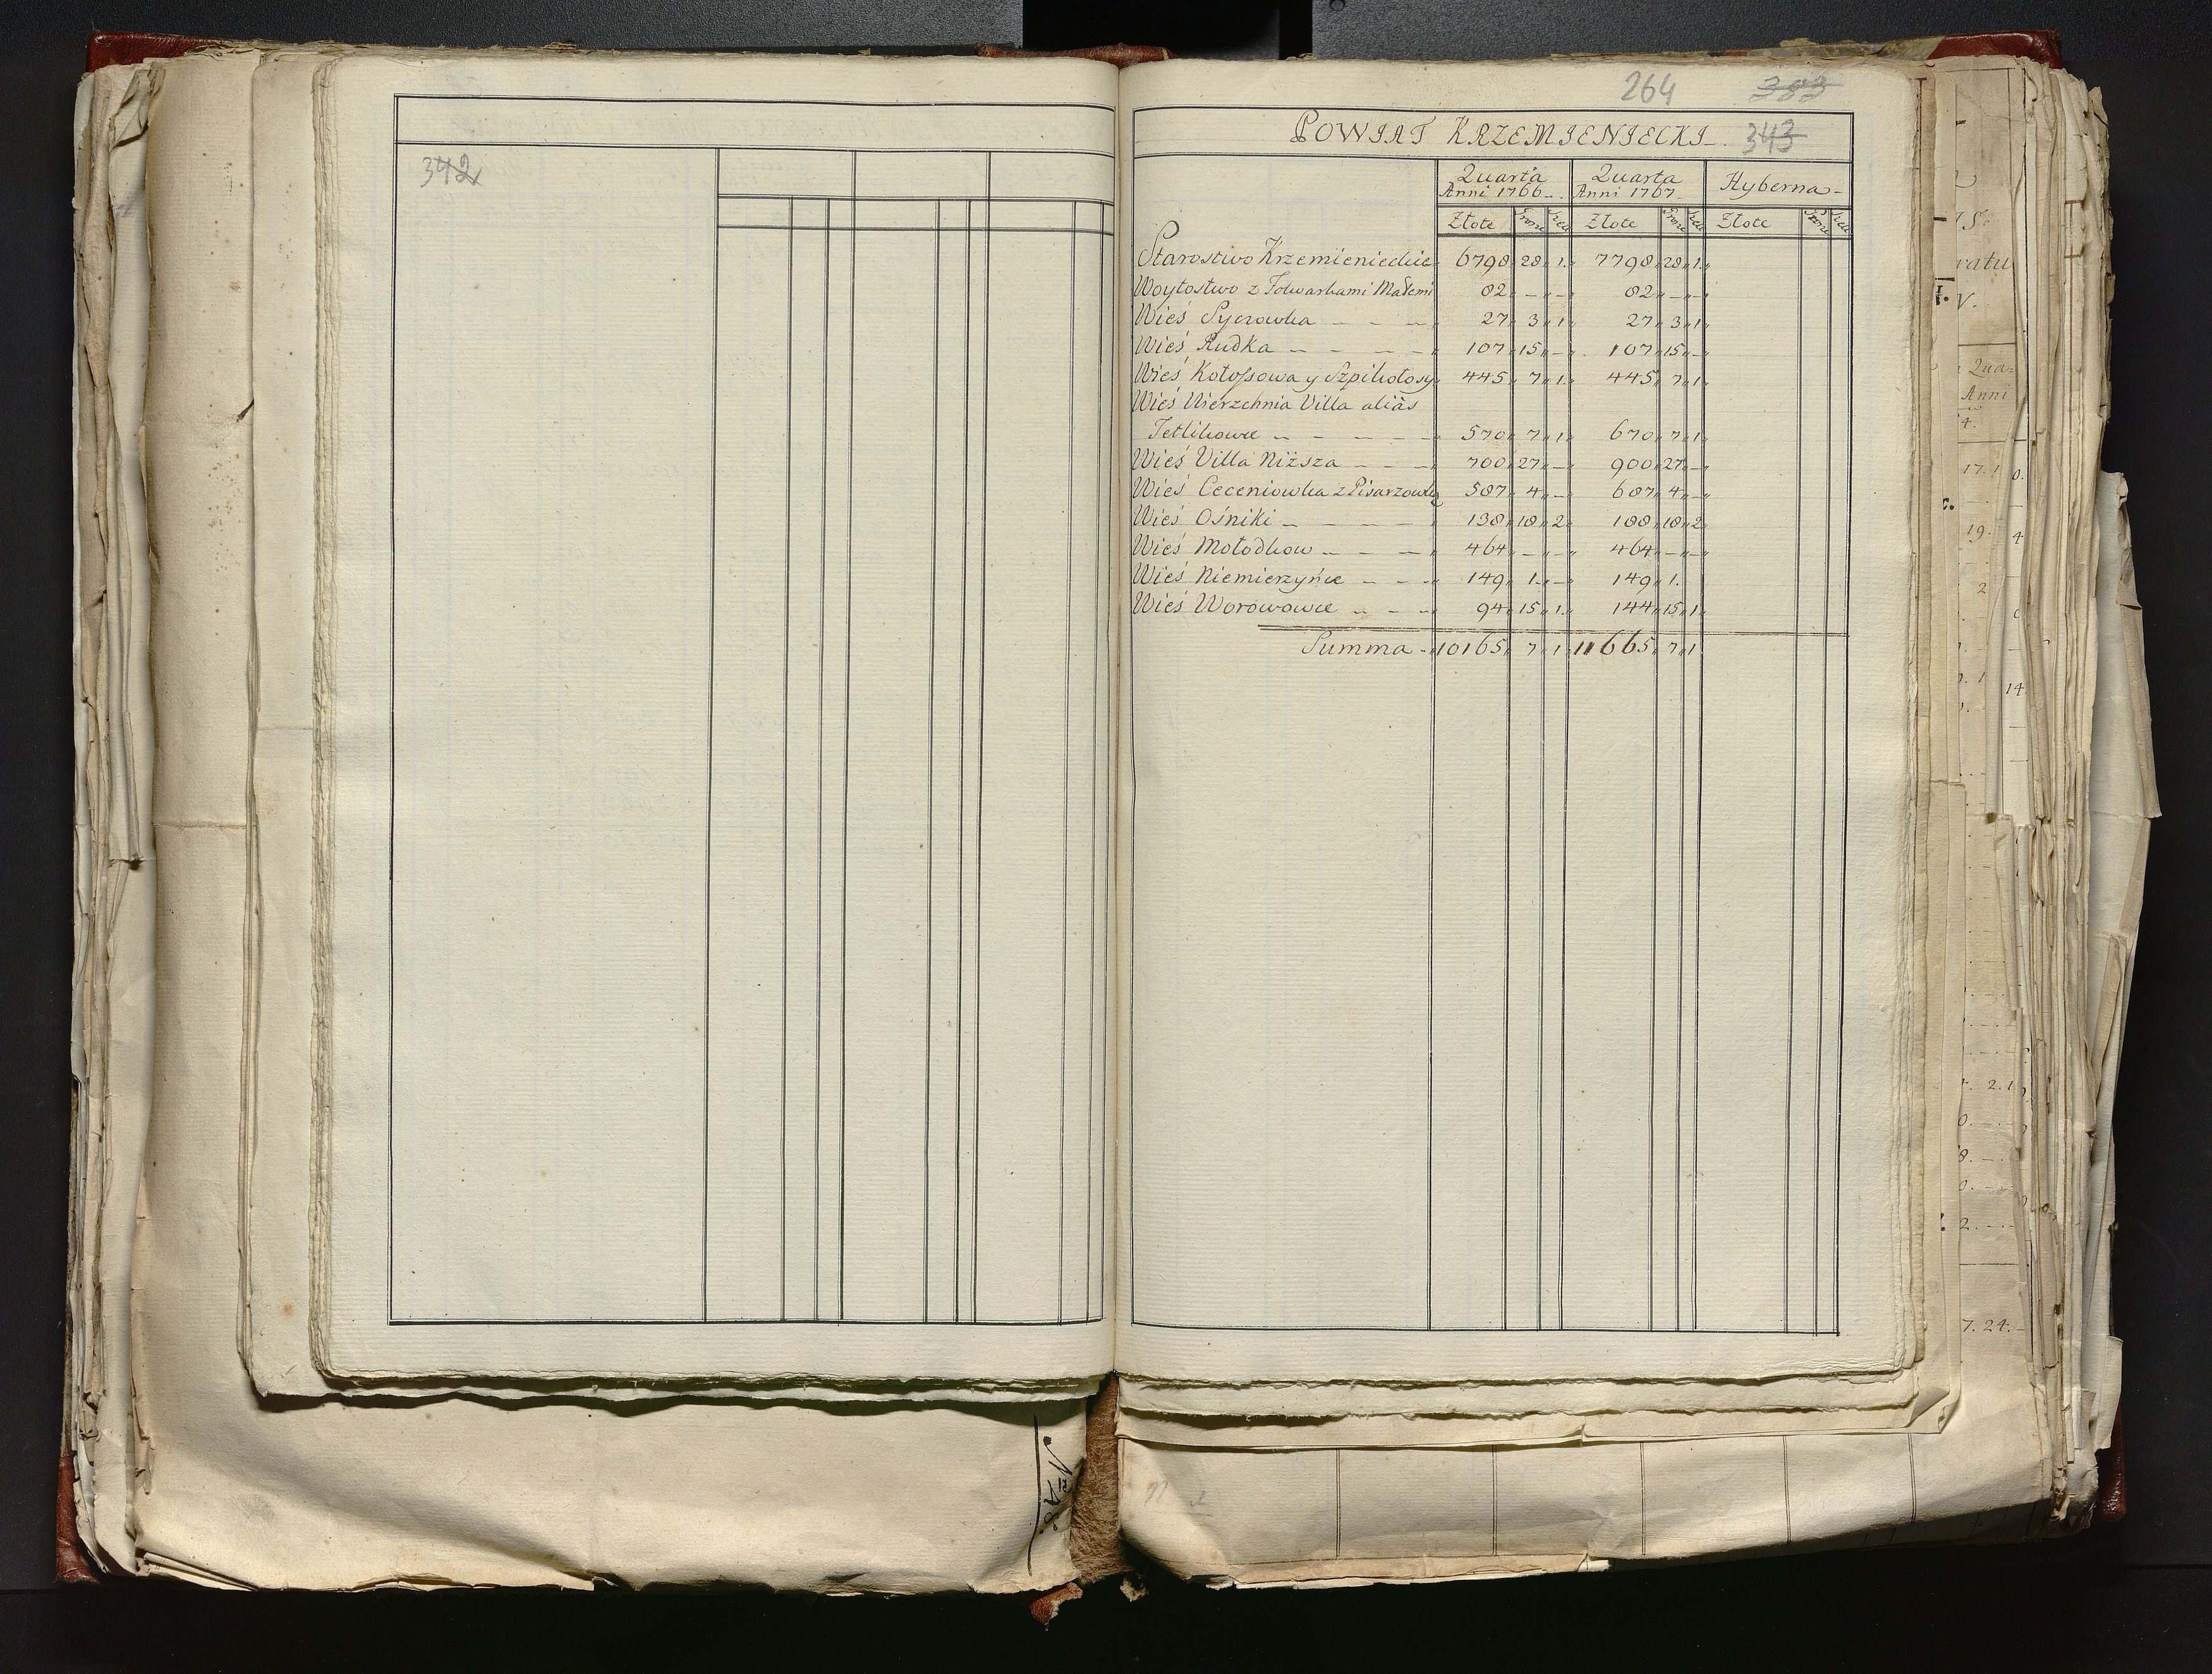 342
264 383
POWIAT KRZEMIENIECKI 343
Quarta Anni 1766 Quarta Anni 1767 Hyberna
Złote Grosze Szel Złote Grosze Szel Złote Grosze Szel
Starostwo Krzemienieckie 6798 28 1 7798 28 1
Woytostwo z Folwarkami Małemi 82 - - 82 - -
Wieś Syczowka 27 3 1 27 3 1
Wieś Rudka 107 15 - 107 15 -
Wieś Kołossowa y Szpikołosy 445 7 1 445 7 1
Wieś Wierzchnia Villa aliàs
Tetlikowce 570 7 1 670 7 1
Wieś Villa Niższa 700 27 - 900 27 -
Wieś Ceceniowka z Pisarzowką 587 4 - 687 4 -
Wieś Ośniki 138 18 2 188 18 2
Wieś Mołodkow 464 - - 464 - -
Wieś Niemierzyńce 149 1 - 149 1
Wieś Worowowce 94 15 1 144 15 1
Summa 10165 7 1 11665 7 1